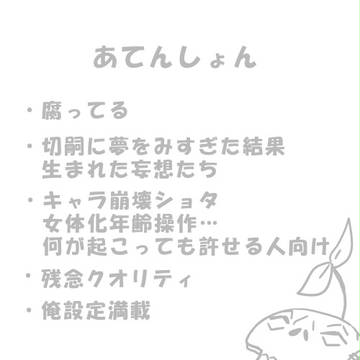 あてんしょん
・腐ってる
・切嗣に夢をみすぎた結果
生まれた妄想たち
・キャラ崩壊ショタ
女体化年齢操作…
何が起こっても許せる人向け
・残念クオリティ
・俺設定満載